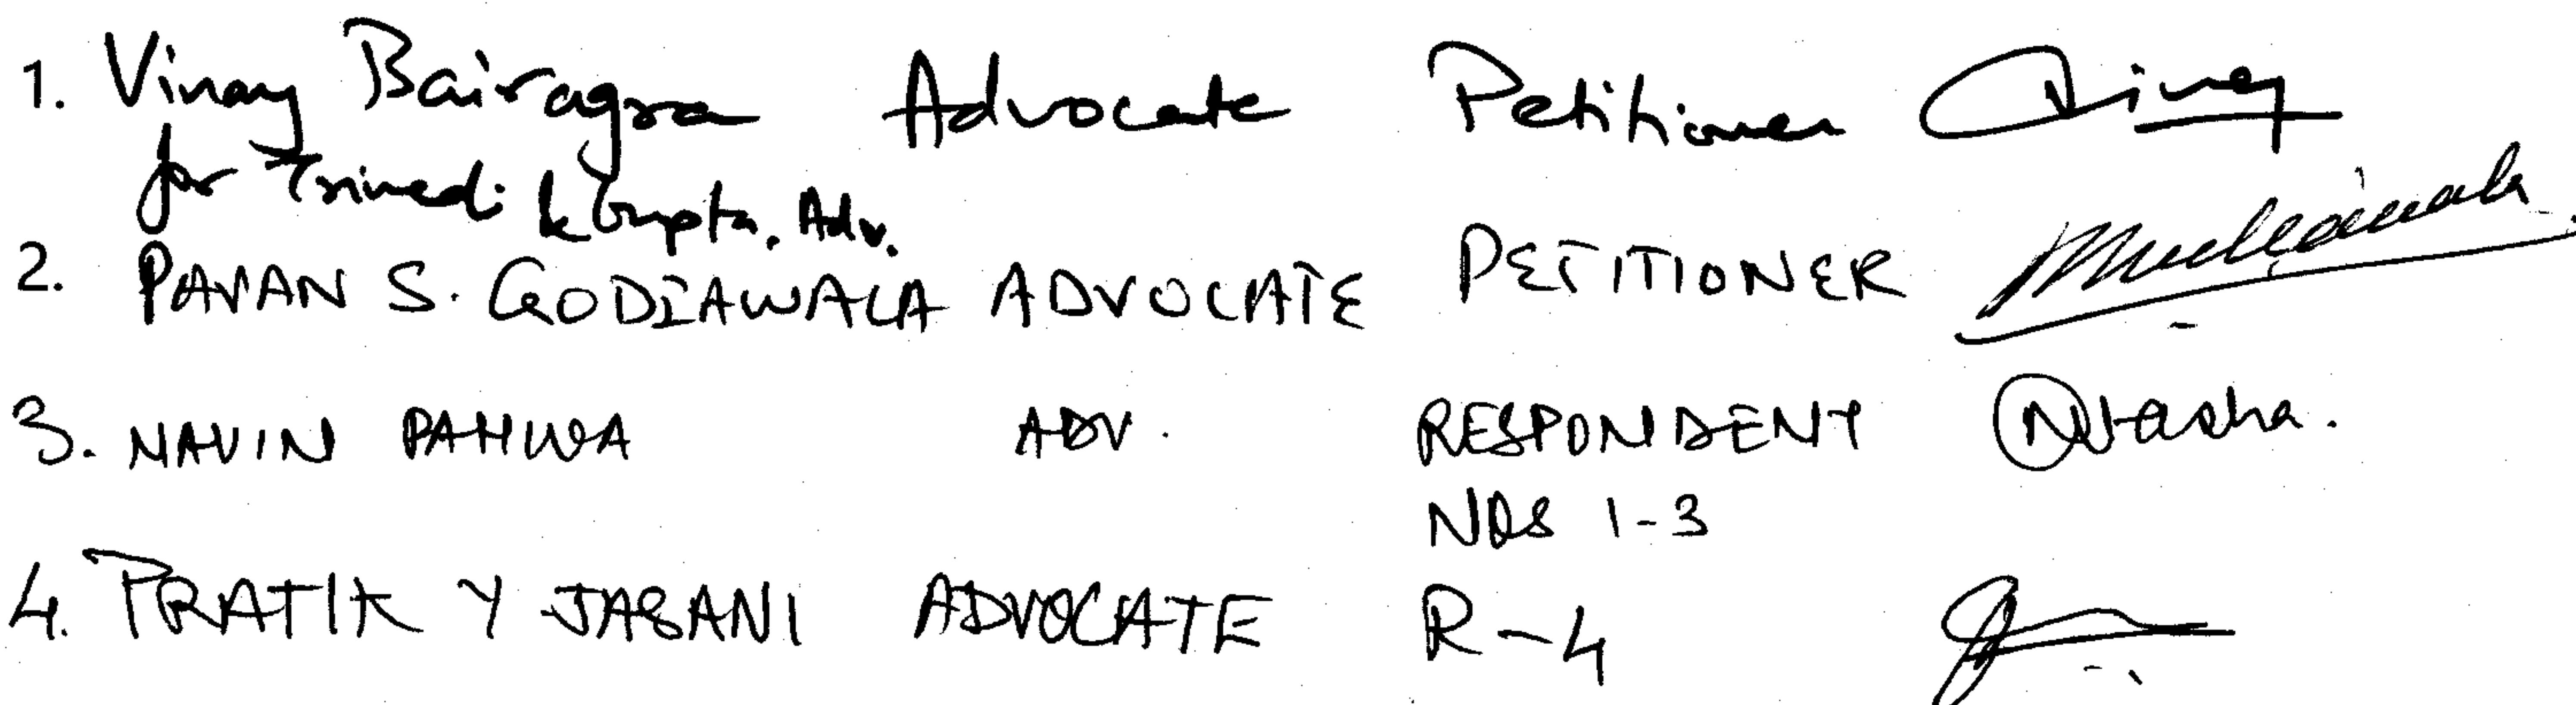 1. Vinay Bairagra Advocate Petitioner Vinay
for Trivedi & Gupta, Adv.
2. PAVAN S. GODIAWALA ADVOCATE PETITIONER
3. NAVIN PAHWA ADV. RESPONDENT Natasha.
NOS 1-3
4. PRATIK Y JASANI ADVOCATE R-4